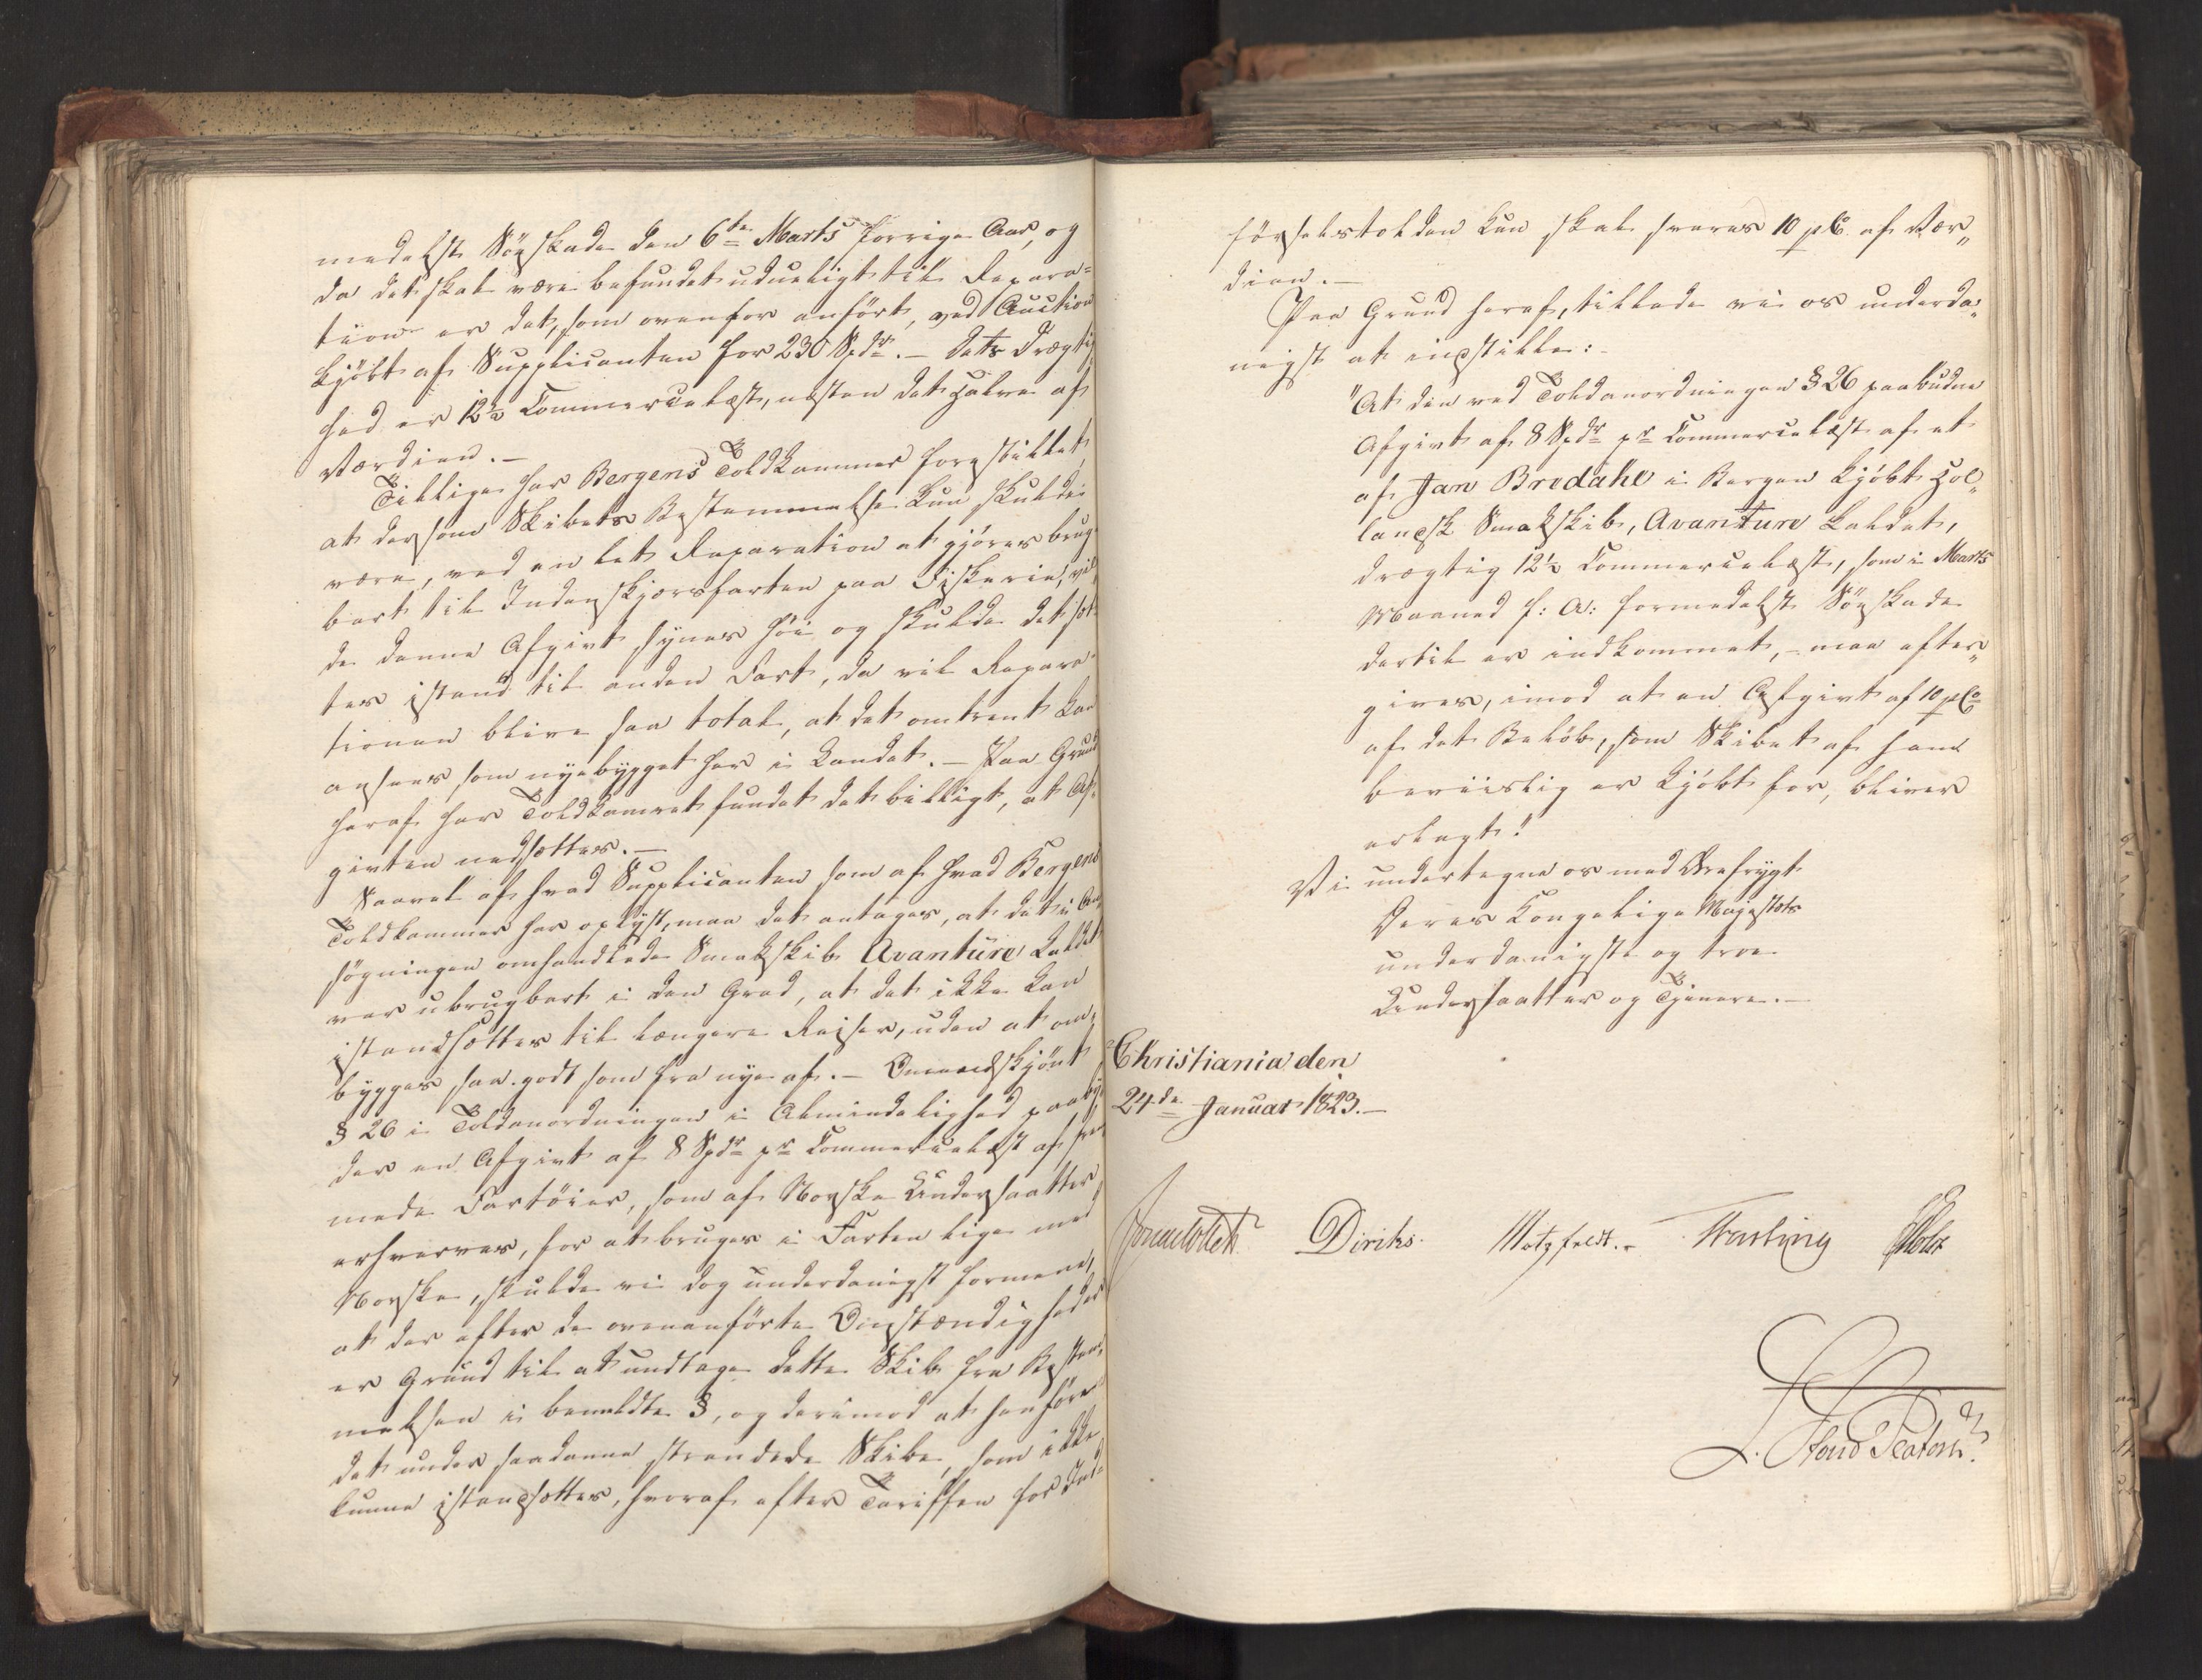 medelst Söeskade den 6te Marts forrige Aar, og
da det skal være befundet udueligt til Repara-
tion er det, som ovenfor anført, ved Auction
kjöbt af Supplicanten for 230 Spdr. – Dets Drægtig
hed er 12½ Commercelæst, næsten det halve af
Værdien. –
Tillige har Bergens Toldkammer forestillet,
at dersom Skibets Bestemmelse kun skulde
være, ved en let Reparation at gjöres brug
bart til Indenskjærsfarten paa Fiskerie, vil
de denne Afgivt synes höi og skulde det sæt
tes istand til anden Fart, da vil Repara-
tionen blive saa total, at det omtrent kan
ansees, som nyebygget her i Landet. – Paa Grund
heraf har Toldkamret fundet det billigt, at Af-
givten nedsættes. –
Saavel af hvad Supplicanten som af hvad Bergens
Toldkammer har oplyst, maa det antages, at det i An
søgningen omhandlede Smakskib Avanture kaldet
var ubrugbart i den Grad, at det ikke kan
istandsættes til længere Reiser, uden at om-
bygges saa godt som fra nye af. – Omendskjönt
§ 26 i Toldanordningen i Almindelighed paaby
der en Afgivt af 8 Spdr pr Commercelæst af frem
mede Fartöier, som af Norske Undersaatter
erhverves, for at bruges i Farten lige med
Norske, skulde vi dog underdanigst formene,
at der efter de ovenanførte Omstændigheder
er Grund til at undtage dette Skib fra Bestem-
melsen i bemeldte §, og derimod at henføre
det under saadanne strandede Skibe, som ikke
kunne istandsættes, hvoraf efter Tariffen for Ind-
förselstolden kun skal svares 10 pC. af Vær„
dien. –
Paa Grund heraf, tillade vi os underda„
nigst at indstille: –
"At den ved Toldanordningen § 26 paabudne
Afgivt af 8 Spdr pr Commercelæst af et
af Jan Brodahl i Bergen kjöbt Hol„
landsk Smakskib, Avanture kaldet,
drægtig 12½ Commercelæst, som i Marts
Maaned f: A: formedelst Söeskade
dertil er indkommet, – maa efter„
gives, imod at en Afgivt af 10 pCo
af det Belöb, som Skibet af ham
beviislig er kjöbt for, bliver
erlagt."
Vi undertegne os med Ærefrygt
Deres Kongelige Majestæts
underdanigste og troe
Undersaatter og Tjenere. –
Christiania den
24de Januar 1823. –
Sommerhielm Diriks. Motzfeldt. – Fasting